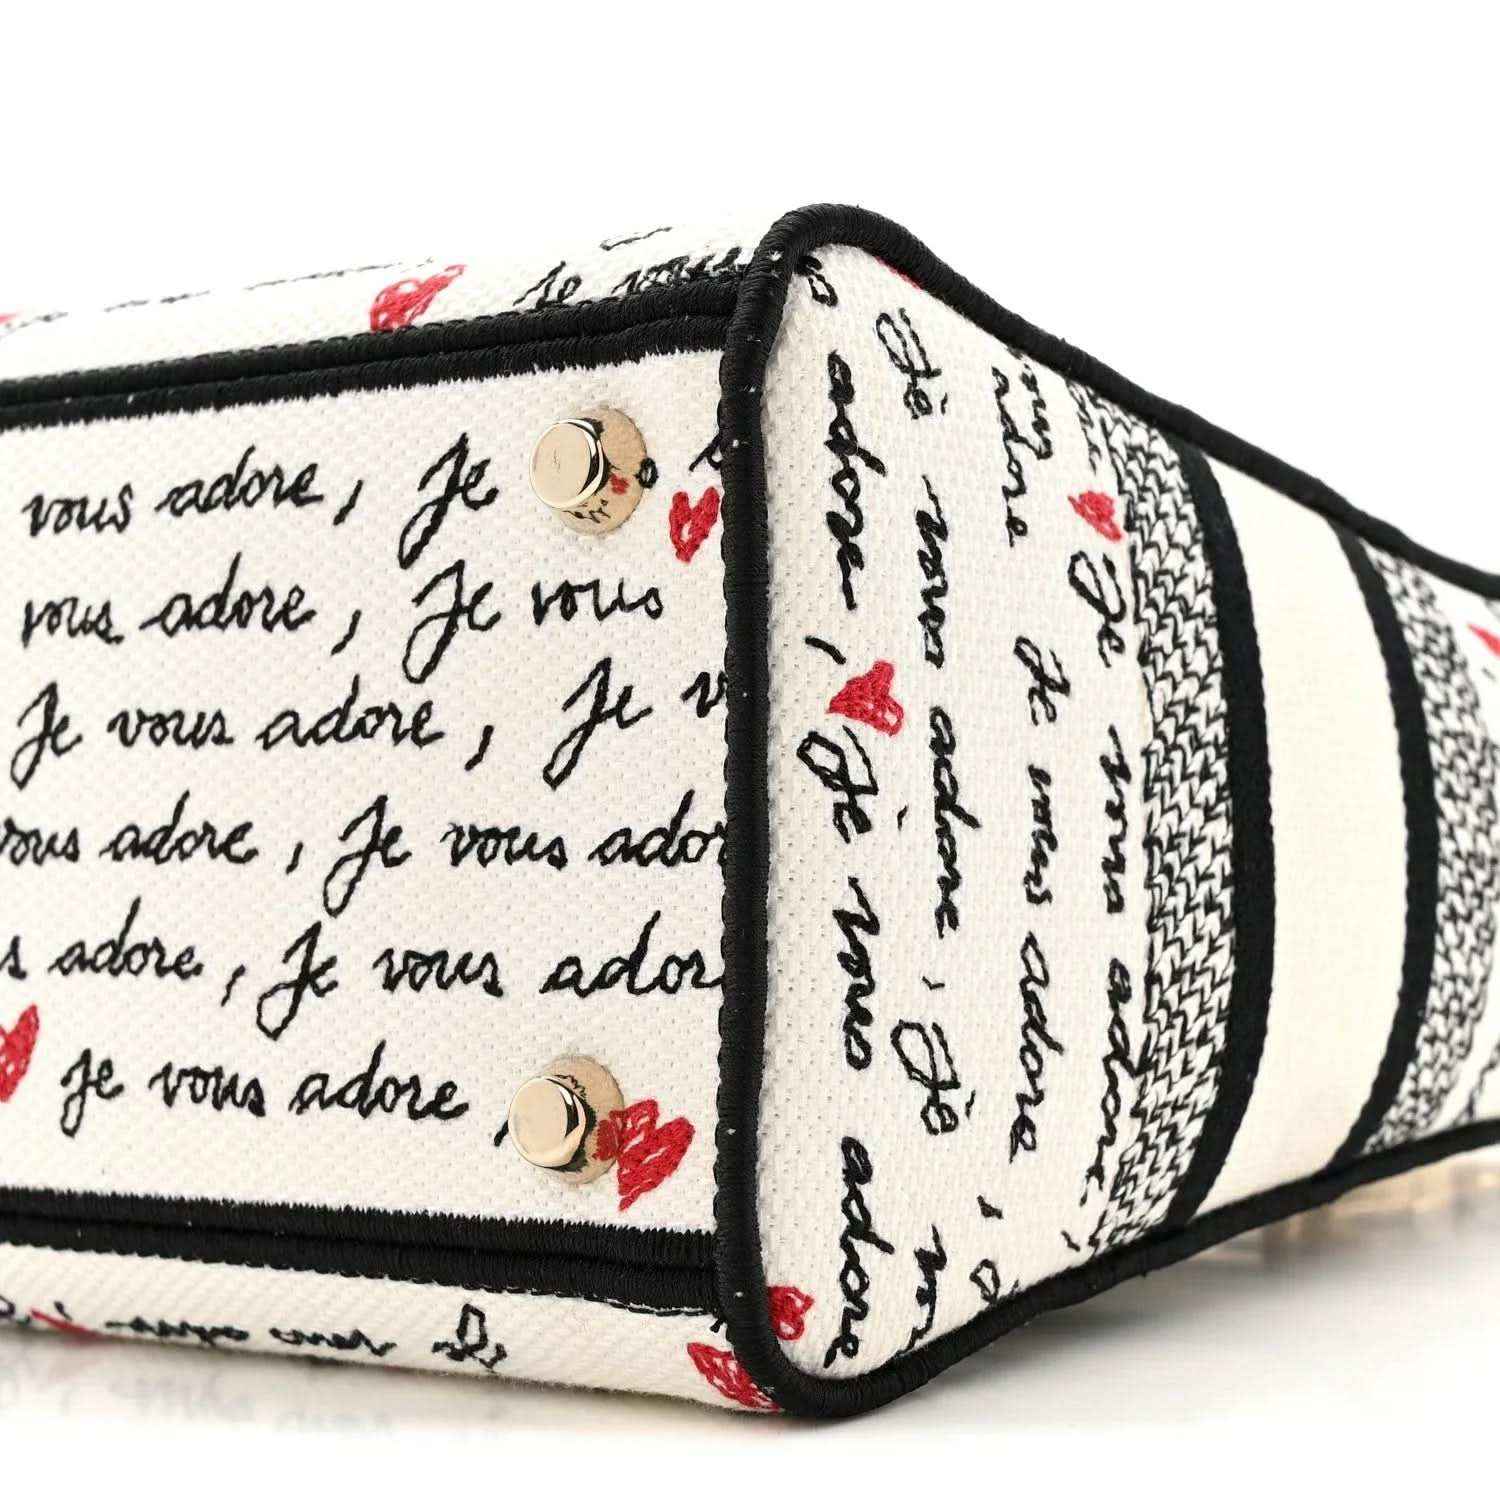 Je vous
vous adore, Je
vous adore, Je vous
Je vous adore, Je
vous adore, Je vous ador
s adore, Je vous ador
Je vous adore,
adore, Je vous adore
Je vous adore, Je
adore Je vous adore
Je vous adore,